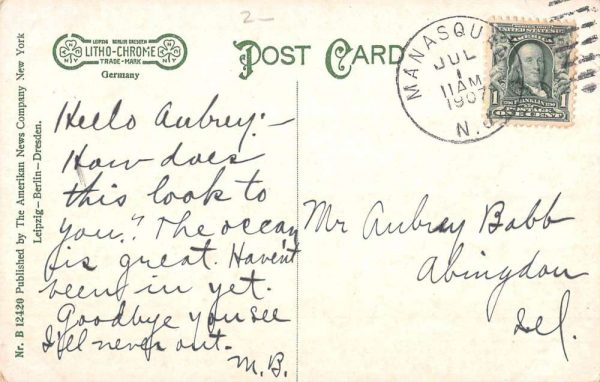 2-
LEIPZIG BERLIN DRESDEN
LITHO-CHROME
TRADE-MARK
N Y
N Y
Germany
POST CARD
MANASQUAN
JUL
1
11 AM
1907
N.J.
UNITED STATES OF AMERICA
FRANKLIN
1 1
POSTAGE
ONE CENT
Nr. B 12420 Published by The Amerikan News Company New York
Leipzig – Berlin – Dresden.
Hello Aubrey:–
How does
this look to
you? The ocean
is great. Haven't
been in yet.
Goodbye you see
I'll never out.
M.B.
Mr Aubrey Babb
Abingdon
Ill.